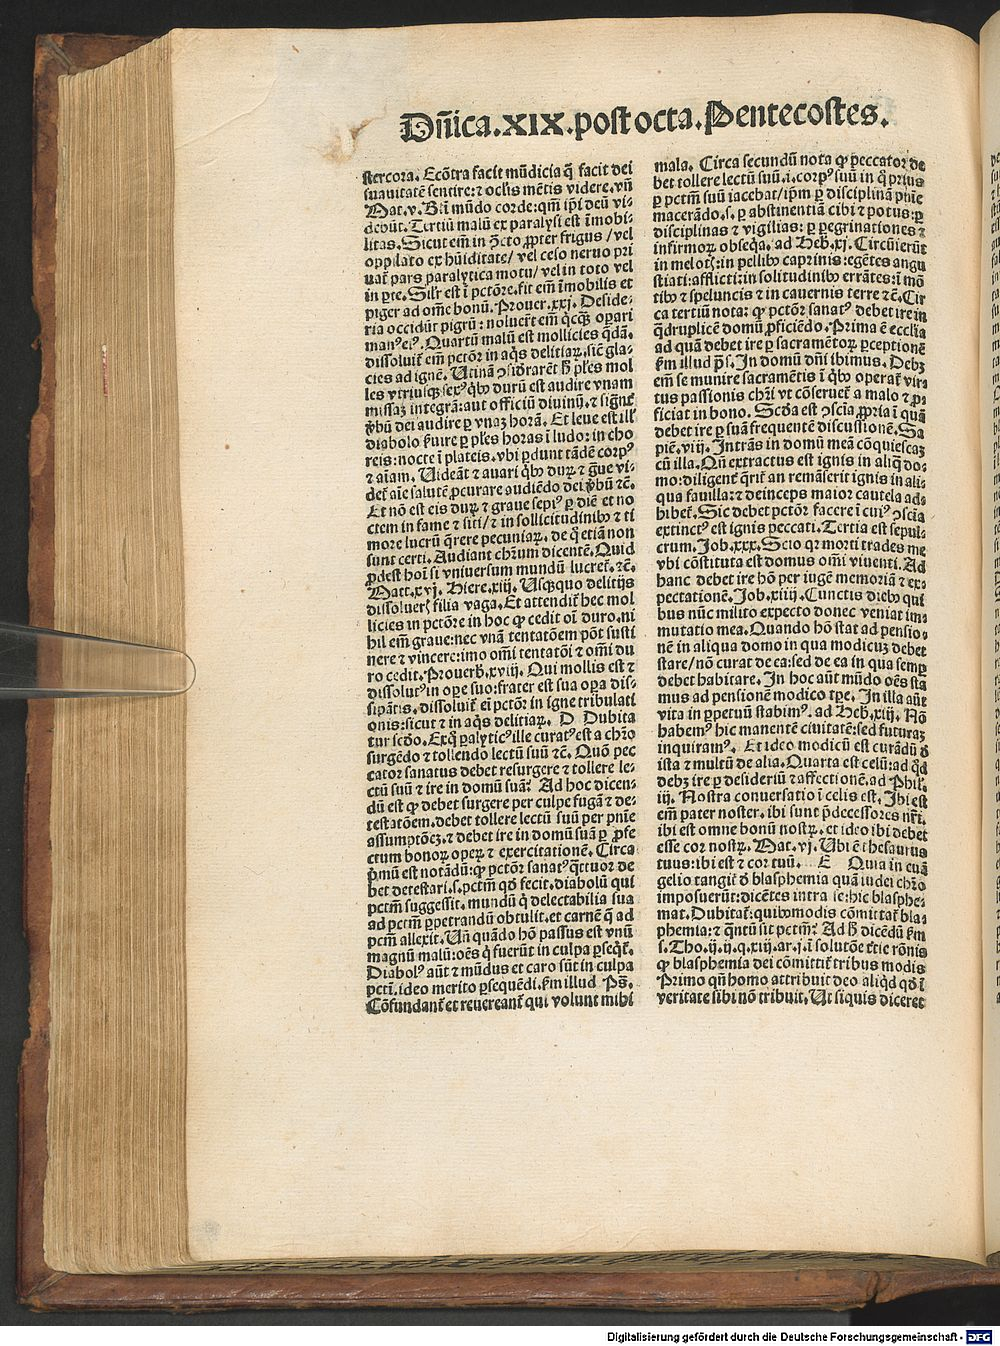 Dñica.XIX.post octa.Pentecostes.
stercora. Ecõtra facit mũdicia q̃ facit dei
suauitatẽ sentire:⁊ oclĩs mẽtis videre.vñ
Mat.v. Bti mũdo corde:qm̃ ip̃i deũ vi-
debũt. Tertiũ malũ ex paralysi est ĩmobi-
litas. Sicut em̃ in ꝓcto ꝓpter frigus/vel
oppilato ex hũiditate/ vel ceso neruo pri
uat̃ pars paralytica motu/ vel in toto vel
in ꝑte. Silr̃ est ĩ pctõre. fit em̃ ĩmobilis et
piger ad om̃e bonũ. Prouer.xxj. Deside-
ria occidũt pigrũ: noluerũt em̃ q̃cq̃ꝫ oꝑari
manꝰ eiꝰ. Quartũ malũ est mollicies q̃dã.
dissoluit em̃ pctõr in aq̃s delitiaꝝ. sic̃ gla-
cies ad ignẽ. Utinã ↄsid̃rarẽt h̃ ples mol
les vtriusq̃ꝫ sexꝰ q̃bꝰ durũ est audire vnam
missaꝫ integrã:aut officiũ diuinũ. ⁊ signẽt̃
v̓bũ dei audire ꝑ vnaꝫ horã. Et leue est ill̃
diabolo ẜuire ꝑ ples horas ĩ ludo: in cho
reis: nocte ĩ plateis. vbi ꝑdunt tãdẽ corpꝰ
⁊ aĩam. Uideãt ⁊ auari q̃bꝰ duꝝ ⁊ g̃ue vi-
det̃ aĩe salutẽ ꝓcurare audiẽdo dei v̓bũ ⁊c̃.
Et nõ est eis duꝝ ⁊ graue sepiꝰ ꝑ diẽ et no
ctem in fame ⁊ siti/ ⁊ in sollicitudinibꝰ ⁊ ti
more lucrũ q̃rere pecuniaꝝ. de q̃ etiã non
sunt certi. Audiant chr̃um dicentẽ. Quid
ꝓdest hoĩ si vniuersum mundũ lucret̃. ⁊c̃.
Matt.xvj. Hiere.xiij. Usq̃quo delitijs
dissolueris filia vaga. Et attendit̃ hec mol
licies in pctõre in hoc ꝙ cedit oĩ duro. ni
hil em̃ graue: nec vnã tentatõem põt susti
nere ⁊ vincere: imo om̃i tentatõi ⁊ om̃i du
ro cedit. Prouerb̃.xviij. Qui mollis est ⁊
dissolutꝰ in oꝑe suo:frater est sua oꝑa dis-
sipãtis. dissoluit̃ em̃ pctõr in igne tribulati
onis:sicut ⁊ in aq̃s delitiaꝝ. D Dubita
tur scd̃o. Exq̃ ꝑalyticꝰ ille curatꝰ est a chr̃o
surgẽdo ⁊ tollendo lectũ suũ ⁊c̃. Quõ pec
cator sanatus debet resurgere ⁊ tollere le-
ctũ suũ ⁊ ire in domũ suã: Ad hoc dicen-
dũ est ꝙ debet surgere per culpe fugã ⁊ de-
testatõem. debet tollere lectũ suũ per pñie
assumptõeꝫ. ⁊ debet ire in domũ suã ꝑ ꝓfe
ctum bonoꝝ opeꝝ ⁊ exercitationẽ. Circa
p̃mũ est notãdũ: ꝙ pctõr sanatꝰ q̃ttuor de
bet detestari. s. pctm̃ qd̃ fecit. diabolũ qui
pctm̃ suggessit. mundũ q̃ delectabilia sua
ad pctm̃ ꝑpetrandũ obtulit. et carnẽ q̃ ad
pctm̃ allexit. Uñ quãdo hõ passus est vnũ
magnũ malũ: oẽs q̃ fuerũt in culpa ꝑseqt̃.
Diabolꝰ aũt ⁊ mũdus et caro sũt in culpa
pcti. ideo merito ꝑsequẽdi. ẜm illud Ps̃.
Cõfundant̃ et reuereant̃ qui volunt mihi
mala. Circa secundũ nota ꝙ peccator de
bet tollere lectũ suũ. i. corpꝰ suũ in q̃ prius
ꝑ pctm̃ suũ iacebat/ ip̃m ꝑ disciplinã pñie
macerãdo. s. ꝑ abstinentiã cibi ⁊ potus: ꝑ
disciplinas ⁊ vigilias: ꝑ peregrinationes ⁊
infirmoꝝ obseq̃a. ad Heb̃.xj. Circũierũt
in melotis: in pellibꝰ caprinis: egẽtes angu
stiati: afflicti: in solitudinibꝰ errãtes: ĩ mõ
tibꝰ ⁊ speluncis ⁊ in cauernis terre ⁊c̃. Cir
ca tertiũ nota: ꝙ pctõr sanatꝰ debet ire in
q̃druplicẽ domũ ꝓficiẽdo. Prima ẽ ecclĩa
ad quã debet ire ꝑ sacramẽtoꝝ ꝑceptionẽ
ẜm illud p̃s. In domũ dñi ibimus. Debꝫ
em̃ se munire sacramẽtis ĩ q̃bꝰ operat̃ vir-
tus passionis chr̃i vt cõseruet̃ a malo ⁊ ꝓ-
ficiat in bono. Scd̃a est ↄscĩa ꝓpria ĩ quã
debet ire ꝑ suã frequentẽ discussionẽ. Sa
piẽ.viij. Intrãs in domũ meã cõquiescaꝫ
cũ illa. Qñ extractus est ignis in aliq̃ do-
mo: diligent̃ q̃rit̃ an remãserit ignis in ali-
qua fauilla: ⁊ deinceps maior cautela ad-
hibet̃. Sic debet pctõr facere ĩ cuiꝰ ↄscĩa
extinctꝰ est ignis peccati. Tertia est sepul-
crum. Job.xxx. Scio qꝛ morti trades me
vbi cõstituta est domus om̃i viuenti. Ad
hanc debet ire hõ per iugẽ memoriã ⁊ ex-
pectationẽ. Job.xiiij. Cunctis diebꝰ qui
bus nũc milito expecto donec veniat im-
mutatio mea. Quando hõ stat ad pensio-
nẽ in aliqua domo in qua modicuꝫ debet
stare/ nõ curat de ea: sed de ea in qua semꝑ
debet habitare. In hoc aũt mũdo oẽs sta
mus ad pensionẽ modico tꝑe. In illa aũt
vita in ꝑpetuũ stabimꝰ. ad Heb̃.xiij. Nõ
habemꝰ hic manentẽ ciuitatẽ: sed futuraꝫ
inquiramꝰ. Et ideo modicũ est curãdũ d̓
ista ⁊ multũ de alia. Quarta est celũ: ad q̃d
debꝫ ire ꝑ desideriũ ⁊ affectionẽ. ad Phil̃.
iij. Nostra conuersatio ĩ celis est. Ibi est
em̃ pater noster. ibi sunt p̃decessores nr̃i.
ibi est omne bonũ nostꝝ. et ideo ibi debet
esse cor nostꝝ. Mat.vj. Ubi ẽ thesaurus
tuus: ibi est ⁊ cor tuũ. E Quia in euã
gelio tangit̃ d̓ blasphemia quã iudei chr̃o
imposuerũt: dicẽtes intra se: hic blasphe-
mat. Dubitat̃: quibꝰmodis cõmittat̃ bla-
phemia: ⁊ q̃ntũ sit pctm̃: Ad h̃ dicẽdũ ẜm
s. Tho.ij.ij.q.xiij.ar.j. ĩ solutõe t̃cie rõnis
ꝙ blasphemia dei cõmittit̃ tribus modis
Primo qñ homo attribuit deo aliq̃d qd̃ ĩ
veritate sibi nõ tribuit. Ut siquis diceret
Digitalisierung gefördert durch die Deutsche Forschungsgemeinschaft - DFG